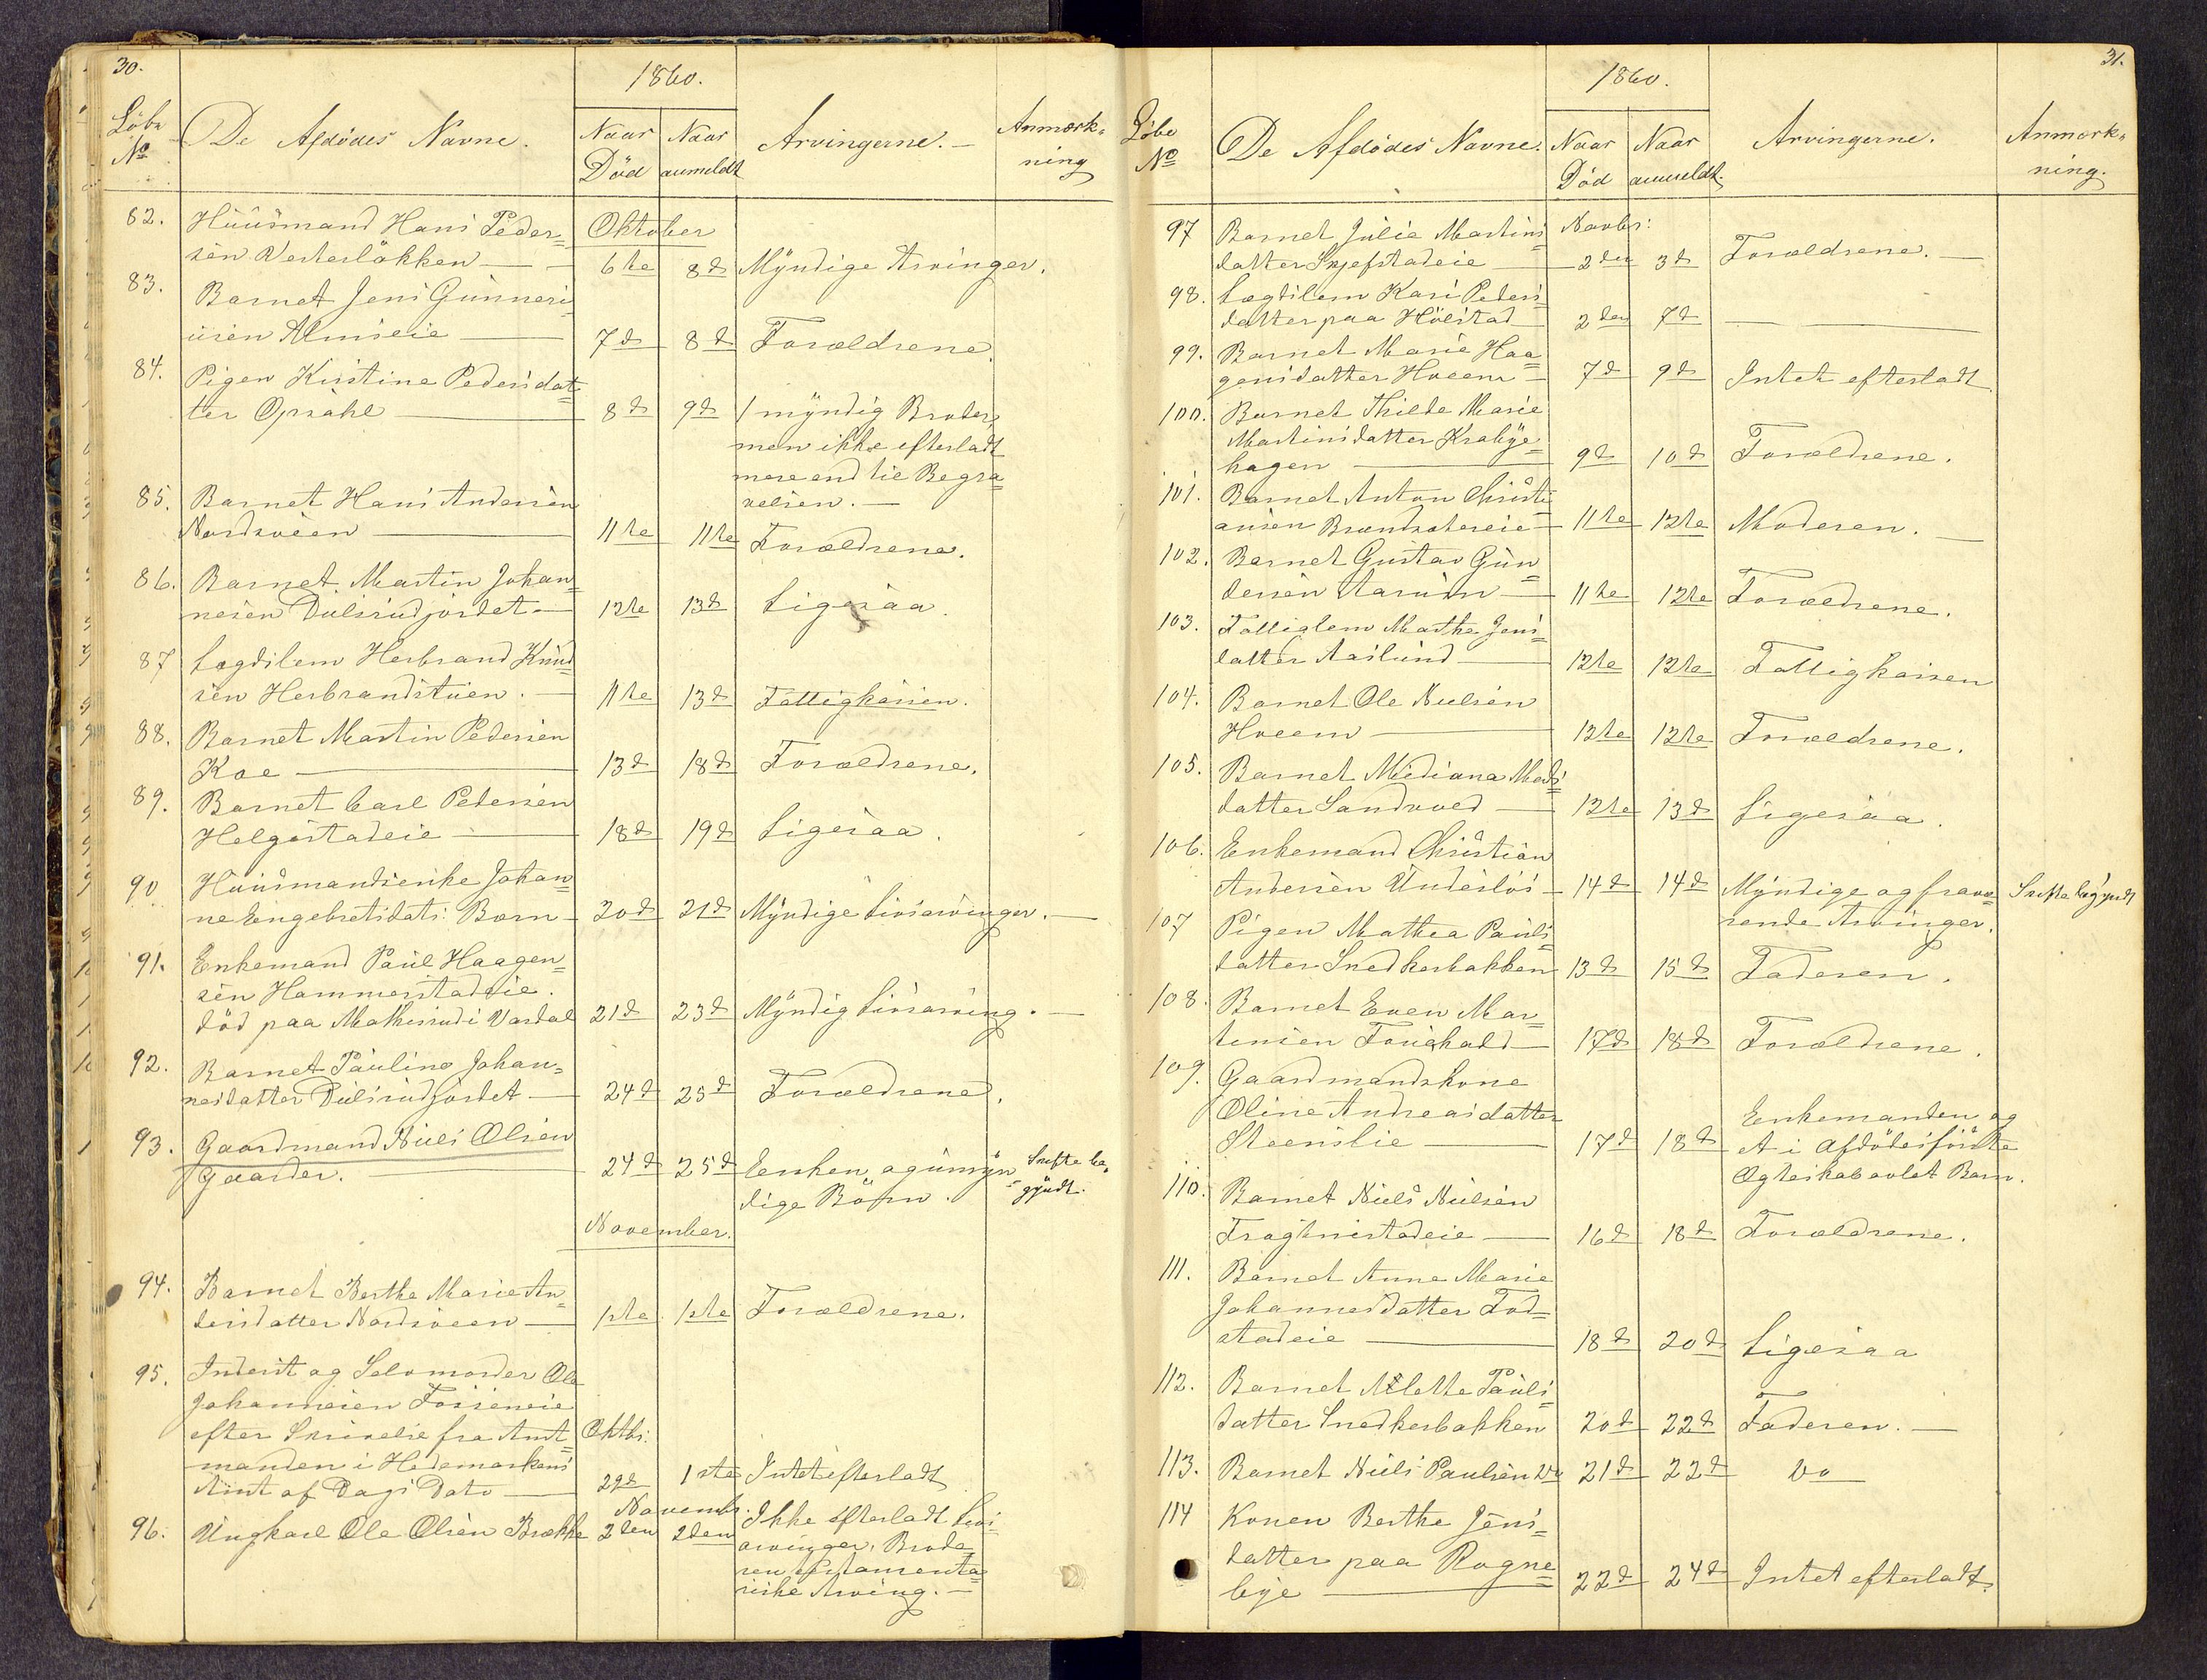 30.
1860.
Löbe No
De Afdödes Navne.
Naar Död
Naar anmeldt
Arvingerne.
Anmærkning
82. Huusmand Hans Peder=
Oktober
sen Vesterlökken — 6te 8d Myndige Arvinger.
83. Barnet Jens Gunneri
usen Almseie — 7d 8d Forældrene.
84. Pigen Kirstine Pedersdat=
ter Opsahl — 8d 9d 1 myndig Broder,
men ikke efterladt
mere end til Begra=
velsen. —
85. Barnet Hans Andersen
Nordsveen — 11te 11te Forældrene.
86. Barnet Martin Johan=
nesen Dulsrudjordet — 12te 13d Ligesaa.
87 Lægdslem Herbrand Knud
sen Herbrandstuen. — 11te 13d Fattigkassen.
88. Barnet Martin Pedersen
Koe — 13d 18d Forældrene.
89. Barnet Carl Pedersen
Helgestadeie — 18d 19d Ligesaa.
90. Huusmandsenke Johan=
ne Engebretsdatr: Börn — 20d 21d Myndige Livsarvinger. —
91. Enkemand Paul Haagen=
sen Hammerstadeie.
död paa Mathisrud i Vardal 21d 23d Myndig Livsarving. —
92. Barnet Pauline Johan=
nesdatter Dulsrudjordet — 24d 25d Forældrene.
93. Gaardmand Niels Olsen
Gaarder. — 24d 25d Enken og umyn= Skifte be=
dige Börn. gyndt.
November.
94. Barnet Berthe Marie An=
dersdatter Nordsveen — 1ste 1ste Forældrene.
95. Inderst og Selvmorder Ole
Johannesen Fosseneie
efter Skrivelse fra Amt= Oktbr:
manden i Hedemarkens
Amt af Dags Dato — 29d 1ste Intet efterladt
Novembr.
96. Ungkarl Ole Olsen Brække 2den 2den Ikke efterladt Livs=
arvinger, Brode
ren testamenta=
riske Arving. —
31.
1860.
Löbe No
De Afdödes Navne.
Naar Död
Naar anmeldt.
Arvingerne.
Anmærkning.
97 Barnet Julie Martins= Novbr:
datter Skjefstadeie — 2den 3d Forældrene. —
98. Lægdslem Kari Peders=
datter paa Hölstad — 2den 7d — —
99. Barnet Marie Haa=
gensdatter Hveem — 7d 9d Intet efterladt.
100. Barnet Thilde Marie
Martinsdatter Krabye=
hagen — 9d 10d Forældrene.
101. Barnet Anton Christi=
ansen Brændsætereie — 11te 12te Moderen. —
102. Barnet Gustav Gun=
dersen Aarudn — 11te 12te Forældrene.
103. Fattiglem Marthe Jens=
datter Aaslund — 12te 12te Fattigkassen
104. Barnet Ole Nielsen
Hveem — 12te 12te Forældrene.
105. Barnet Midiana Mads=
datter Sandvold — 12te 13d Ligesaa.
106. Enkemand Christian
Andersen Underlös — 14d 14d Myndige og fravæ= Skifte begyndt
rende Arvinger.
107 Pigen Mathea Pauls=
datter Snedkerbakken 13d 15d Faderen.
108. Barnet Even Mar=
tinsen — 17d 18d Forældrene.
109. Gaardmandskone
Oline Andreasdatter
Steenslie — 17d 18d Enkemanden og
et i Afdödes förste
Ægteskab avlet Barn.
110. Barnet Niels Nielsen
Fragtnistadeie — 16d 18d Forældrene.
111. Barnet Anne Marie
Johannesdatter Fod=
stadeie — 18d 20d Ligesaa
112. Barnet Mlette Pauls=
datter Snedkerbakken 20d 22d Faderen. —
113. Barnet Niels Paulsen Do 21d 22d Do
114 Konen Berthe Jens=
datter paa Rogne=
bye — 22d 24d Intet efterladt.